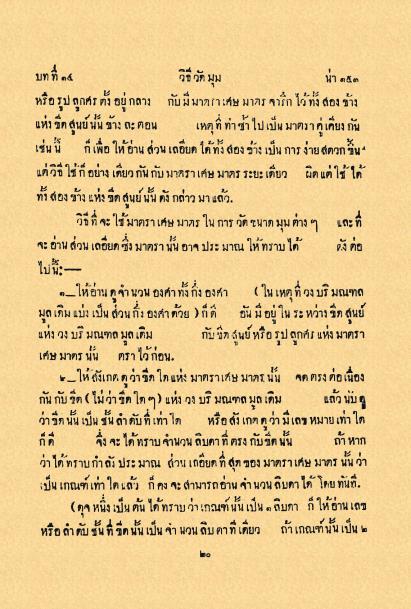 บทที่ ๑๔ วิธีวัดมุม น่า ๑๕๓
หรือ รูป ลูกศร ตั้ง อยู่ กลาง กับ มี มาตรา เศษ มาตร จาริก ไว้ ทั้ง สอง ข้าง
แห่ง ขีด สูนย์ นั้น ข้าง ละ ตอน เหตุ ที่ ทำ ซ้ำ ไป เป็น มาตรา คู่ เดียว กัน
เช่น นี้ ก็ เพื่อ ให้ อ่าน ส่วน เลอียด ได้ ทั้ง สอง ข้าง เป็น การ ง่าย สดวก ขึ้น
แต่ วิธี ใช้ ก็ อย่าง เดียว กัน กับ มาตรา เศษ มาตร ระยะ เดียว ผิด แต่ ใช้ ได้
ทั้ง สอง ข้าง แห่ง ขีด สูนย์ นั้น ดัง กล่าว มา แล้ว.
วิธี ที่ จะ ใช้ มาตรา เศษ มาตร ใน การ วัด ขนาด มุม ต่าง ๆ และ ที่
จะ อ่าน ส่วน เลอียด ซึ่ง มาตรา นั้น อาจ ประมาณ ให้ ทราบ ได้ ดัง ต่อ
ไป นี้:—
๑_ให้ อ่าน ดู จำนวน องศา ทั้ง กึ่ง องศา ( ใน เหตุ ที่ วง บริมณฑล
มูล เดิม แบ่ง เป็น ส่วน กึ่ง องศา ด้วย ) ก็ ดี อัน มี อยู่ ใน ระหว่าง ขีด สูนย์
แห่ง วง บริมณฑล มูล เดิม กับ ขีด สูนย์ หรือ รูป ลูกศร แห่ง มาตรา
เศษ มาตร นั้น ตรา ไว้ ก่อน.
๒_ให้ สังเกต ดู ว่า ขีด ใด แห่ง มาตรา เศษ มาตร นั้น จด ตรง ต่อ เนื่อง
กัน กับ ขีด ( ไม่ ว่า ขีด ใด ๆ ) แห่ง วง บริมณฑล มูล เดิม แล้ว นับ ดู
ว่า ขีด นั้น เป็น ชั้น ลำดับ ที่ เท่า ใด หรือ สังเกต ดู ว่า มี เลข หมาย เท่า ใด
ก็ ดี จึ่ง จะ ได้ ทราบ จำนวน ลิบดา ที่ ตรง กับ ขีด นั้น ถ้า หาก
ว่า ได้ ทราบ กำลัง ประมาณ ส่วน เลอียด ที่ สุด ของ มาตรา เศษ มาตร นั้น ว่า
เป็น เกณฑ์ เท่า ใด แล้ว ก็ คง จะ สามารถ อ่าน จำนวน ลิบดา ได้ โดย ทันที.
( ดุจ หนึ่ง เป็น ต้น ได้ ทราบ ว่า เกณฑ์ นั้น เป็น ๑ ลิบดา ก็ ให้ อ่าน เลข
หรือ ลำดับ ชั้น ที่ ขีด นั้น เป็น จำนวน ลิบดา ที่ เดียว ถ้า เกณฑ์ นั้น เป็น ๒
๒๐